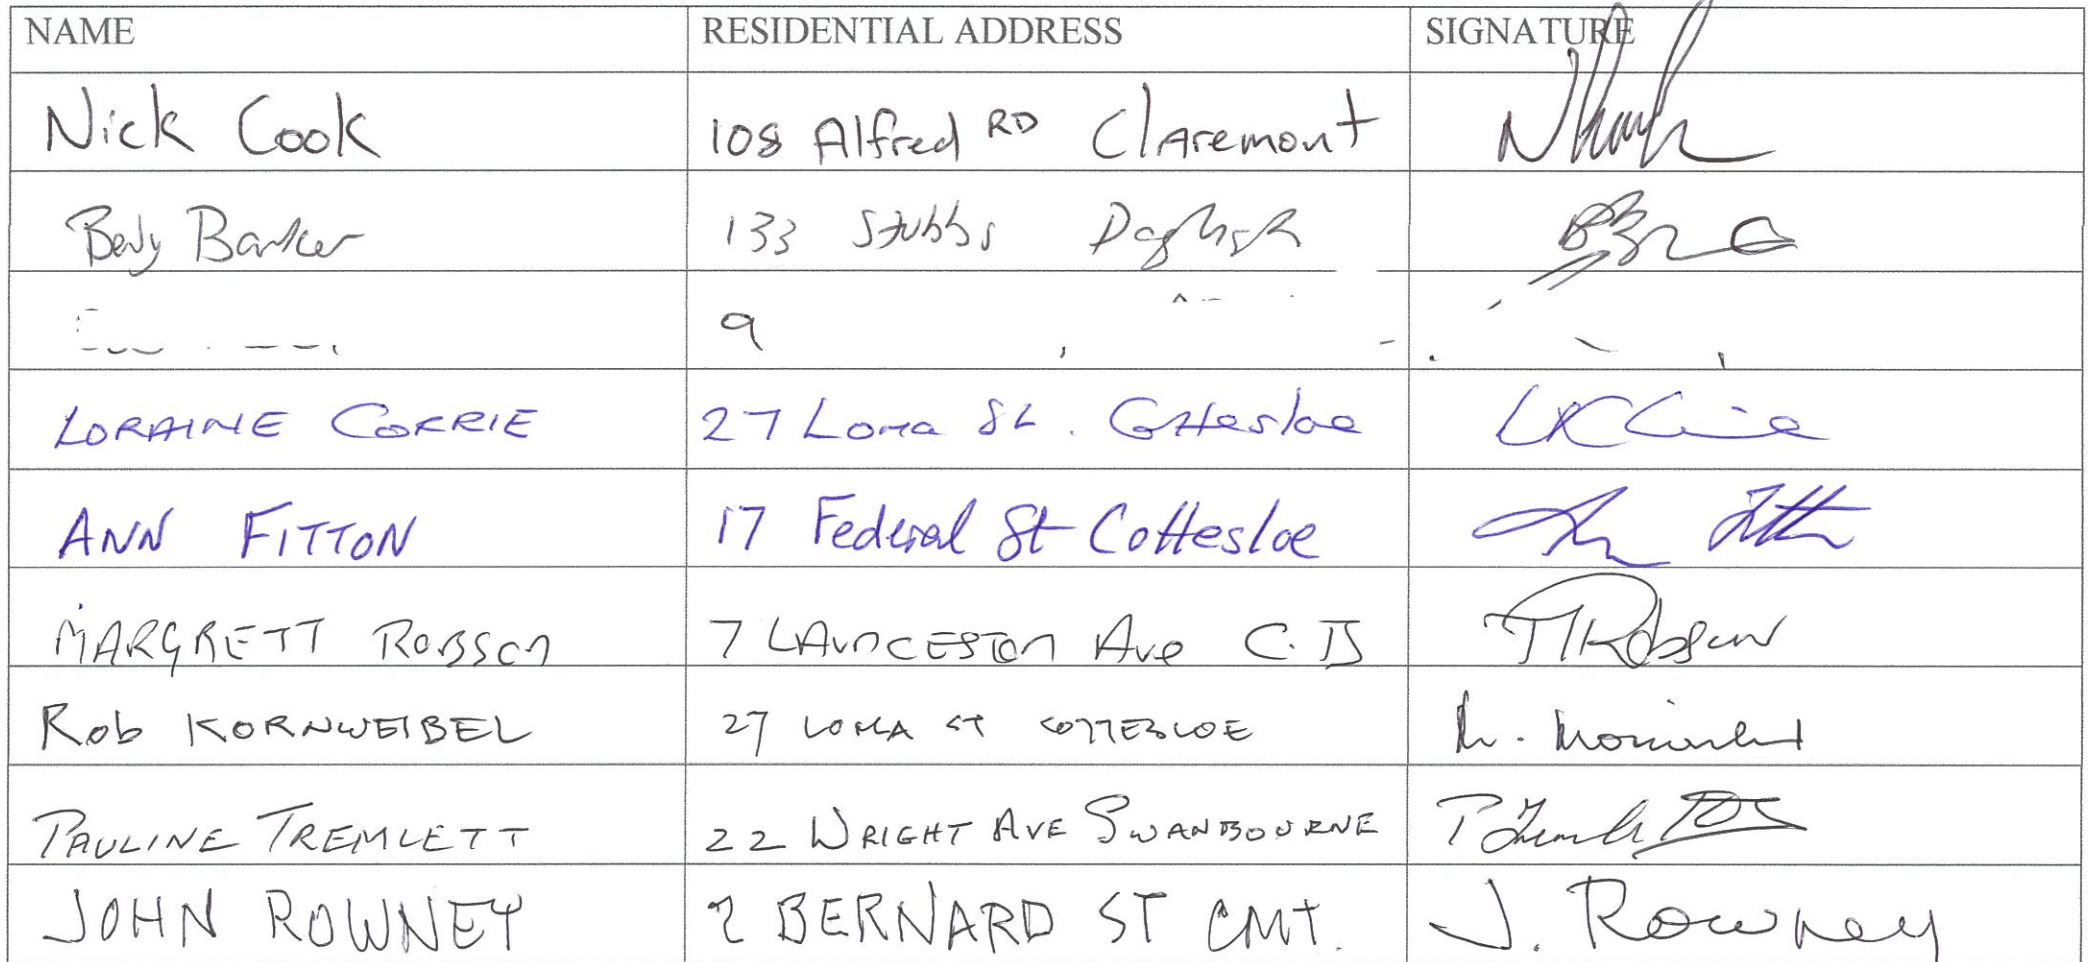 NAME RESIDENTIAL ADDRESS SIGNATURE
Nick Cook 108 Alfred RD Claremont
Barker 133 Stubbs Daglish
9
LORAINE CORRIE 27 Loma St. Cottesloe
ANN FITTON 17 Federal St Cottesloe Ann Fitton
MARGRETT ROBSON 7 LAUNCESTON Ave C.B MRobson
Rob KORNWEIBEL 27 LOMA ST COTTESLOE
PAULINE TREMLETT 22 WRIGHT AVE SWANBOURNE
JOHN ROWNEY 2 BERNARD ST CMT. J. Rowney